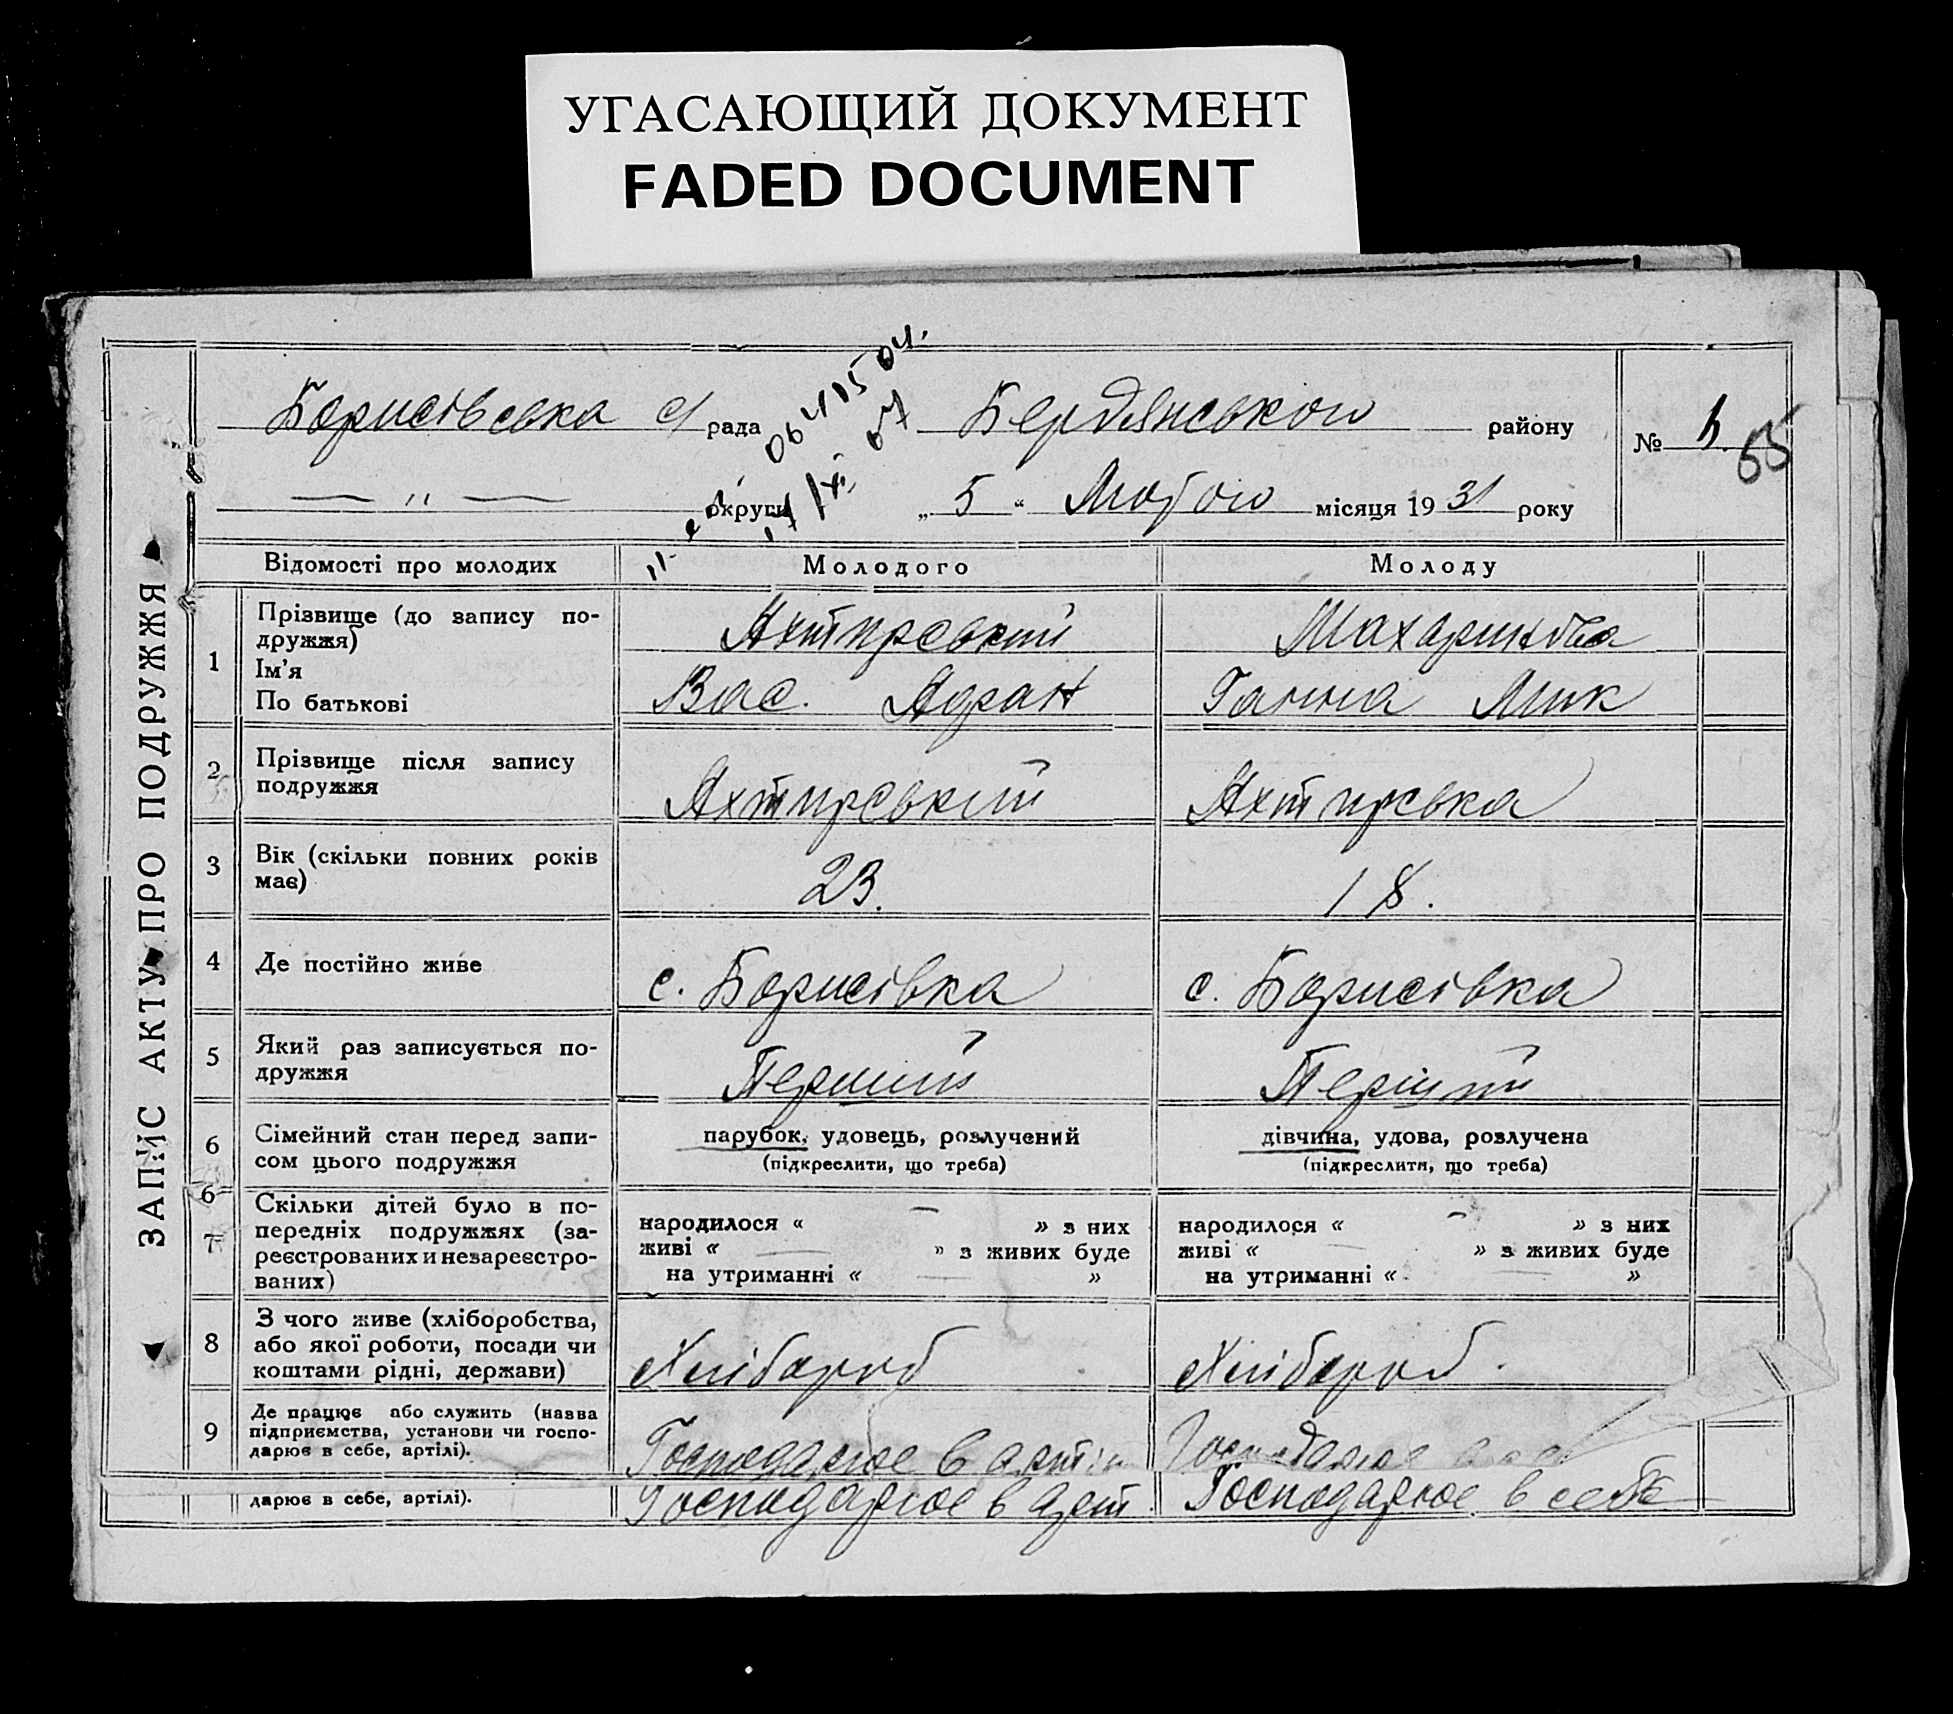 УГАСАЮЩИЙ ДОКУМЕНТ
FADED DOCUMENT
Борисівська с/ рада Бердянського району
№ 55
— " — округи „ 5 “ Лютого місяця 1931 року
ЗАПИС АКТУ ПРО ПОДРУЖЖЯ
Відомості про молодих Молодого Молоду
1 Прізвище (до запису по-
дружжя) Ахтирський Махаринова
Ім'я
По батькові Вас. Адран Ганна Мик
2 Прізвище після запису
подружжя Ахтирський Ахтирська
3 Вік (скільки повних років
має) 23. 18.
4 Де постійно живе с. Борисівка с. Борисівка
5 Який раз записується по-
дружжя Перший Перший
6 Сімейний стан перед запи-
сом цього подружжя
парубок, удовець, розлучений дівчина, удова, розлучена
(підкреслити, що треба) (підкреслити, що треба)
6
7 Скільки дітей було в по-
передніх подружжях (за-
реєстрованих и незареєстро-
ваних)
народилося « — » з них народилося « — » з них
живі « — » з живих буде живі « — » з живих буде
на утриманні « — » на утриманні « — »
8 З чого живе (хліборобства,
або якої роботи, посади чи
коштами рідні, держави) Хлібороб Хлібороб.
9 Де працює або служить (назва
підприємства, установи чи госпо-
дарює в себе, артілі). Господарює в артіл Господарює
дарює в себе, артілі). Господарює в арт. Господарює в себе